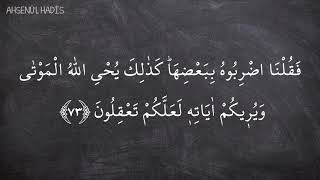 AHSENÜ'L HADİS
فَقُلْنَا اضْرِبُوهُ بِبَعْضِهَاۜ كَذٰلِكَ يُحْيِ اللّٰهُ الْمَوْتٰى
وَيُر۪يكُمْ اٰيَاتِه۪ لَعَلَّكُمْ تَعْقِلُونَ ﴿٧٣﴾